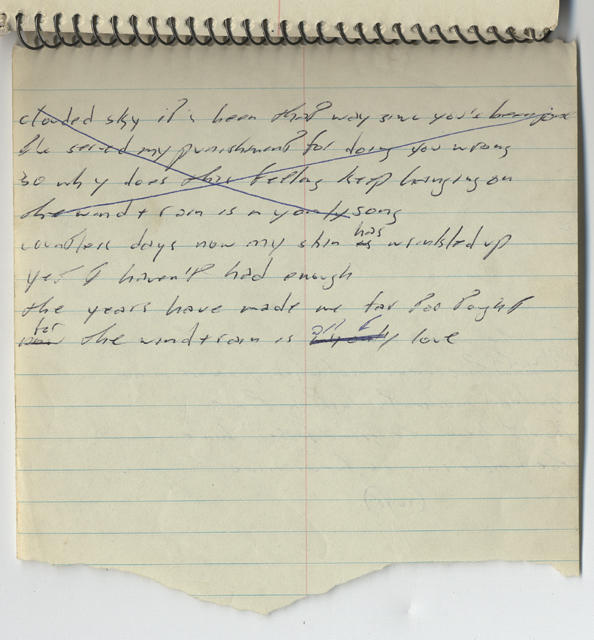 clouded sky it's been that way since you've been gone
I've served my punishment for doing you wrong
so why does this feeling keep hanging on
the wind + rain is my only song
countless days now my skin has wrinkled up
yet I haven't had enough
the years have made me far too tough
for the wind + rain is love